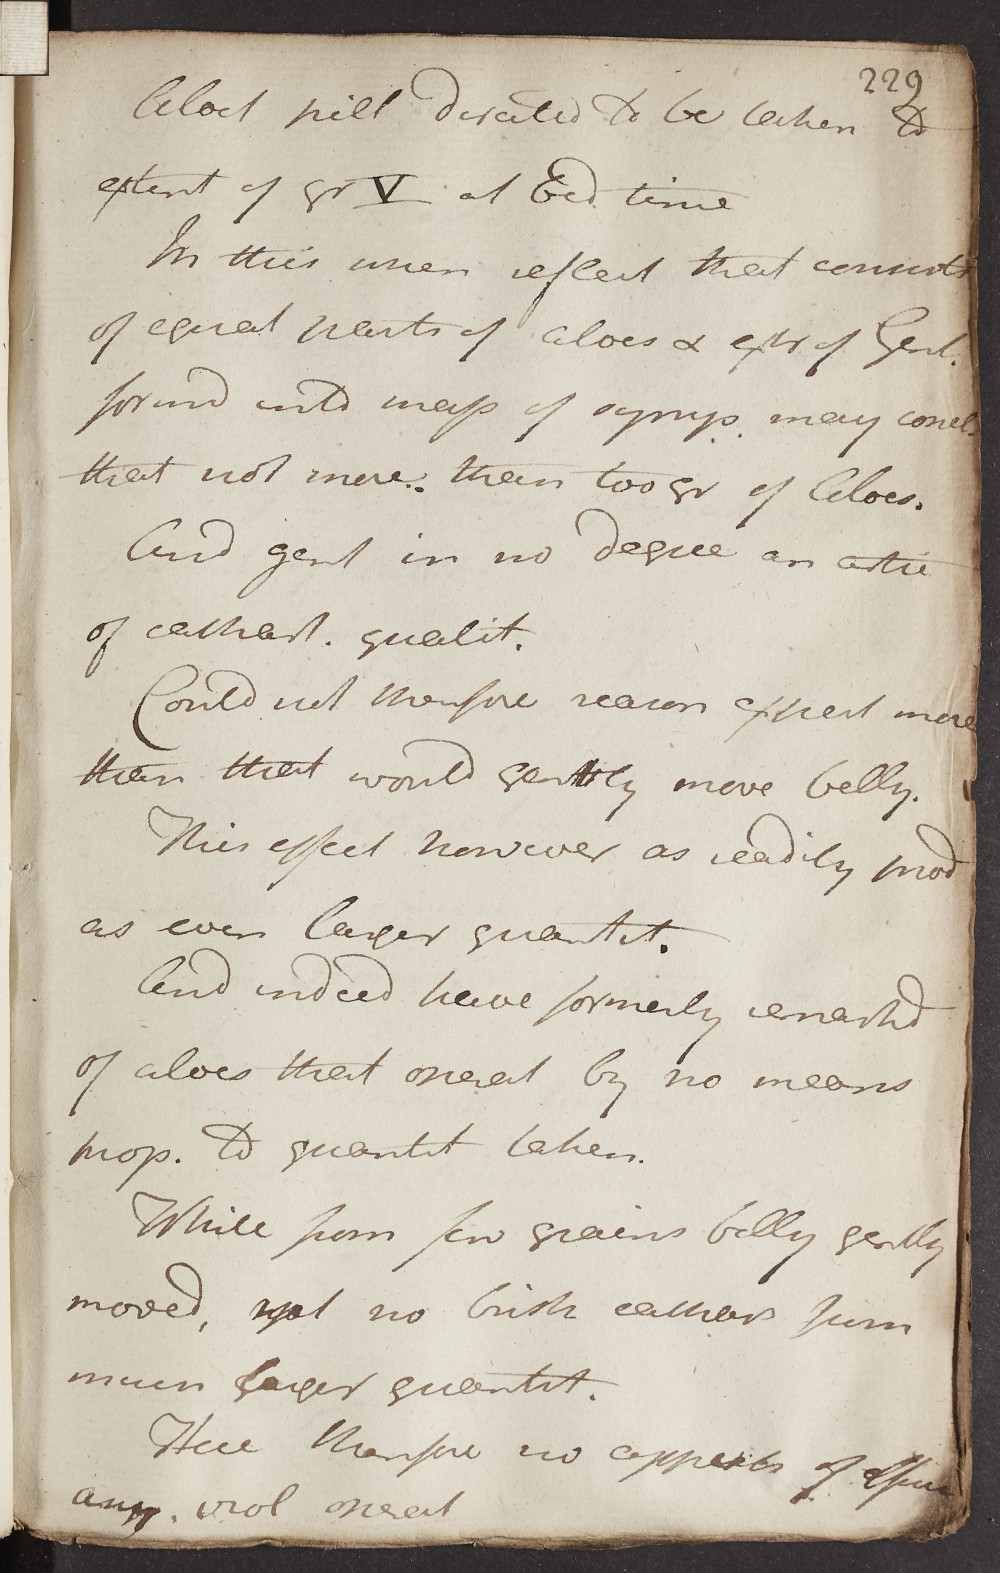 229
Aloet pill directed to be taken to
extent of gr V at bed time
In this when reflect that consists
of equal parts of aloes & extr of Gent.
formd into mass of syrup. may concl.
that not more. than too gr of Aloes.
And gent in no degree an
of cathart. qualit.
Could not therefore reason expect more
than that would gently move belly.
This effect however as readily prod
as even larger quantit.
And indeed have formerly remarkd
of aloes that operat by no means
prop. to quantit taken.
While from few grains belly gently
moved, yet no brisk cathars from
much larger quantit.
Here therefore no appears of
any. viol operat